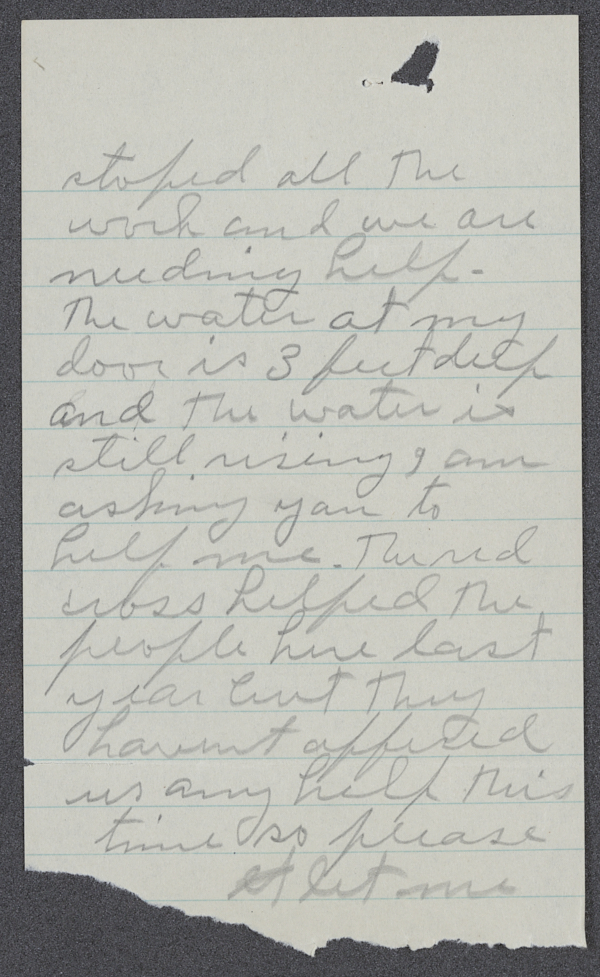 stoped all the
work and we are
needing help-
The water at my
door is 3 feet deep
and the water is
still rising I am
asking you to
help me. The red
cross helped the
people here last
year but they
havent offered
us any help this
time so please
let me